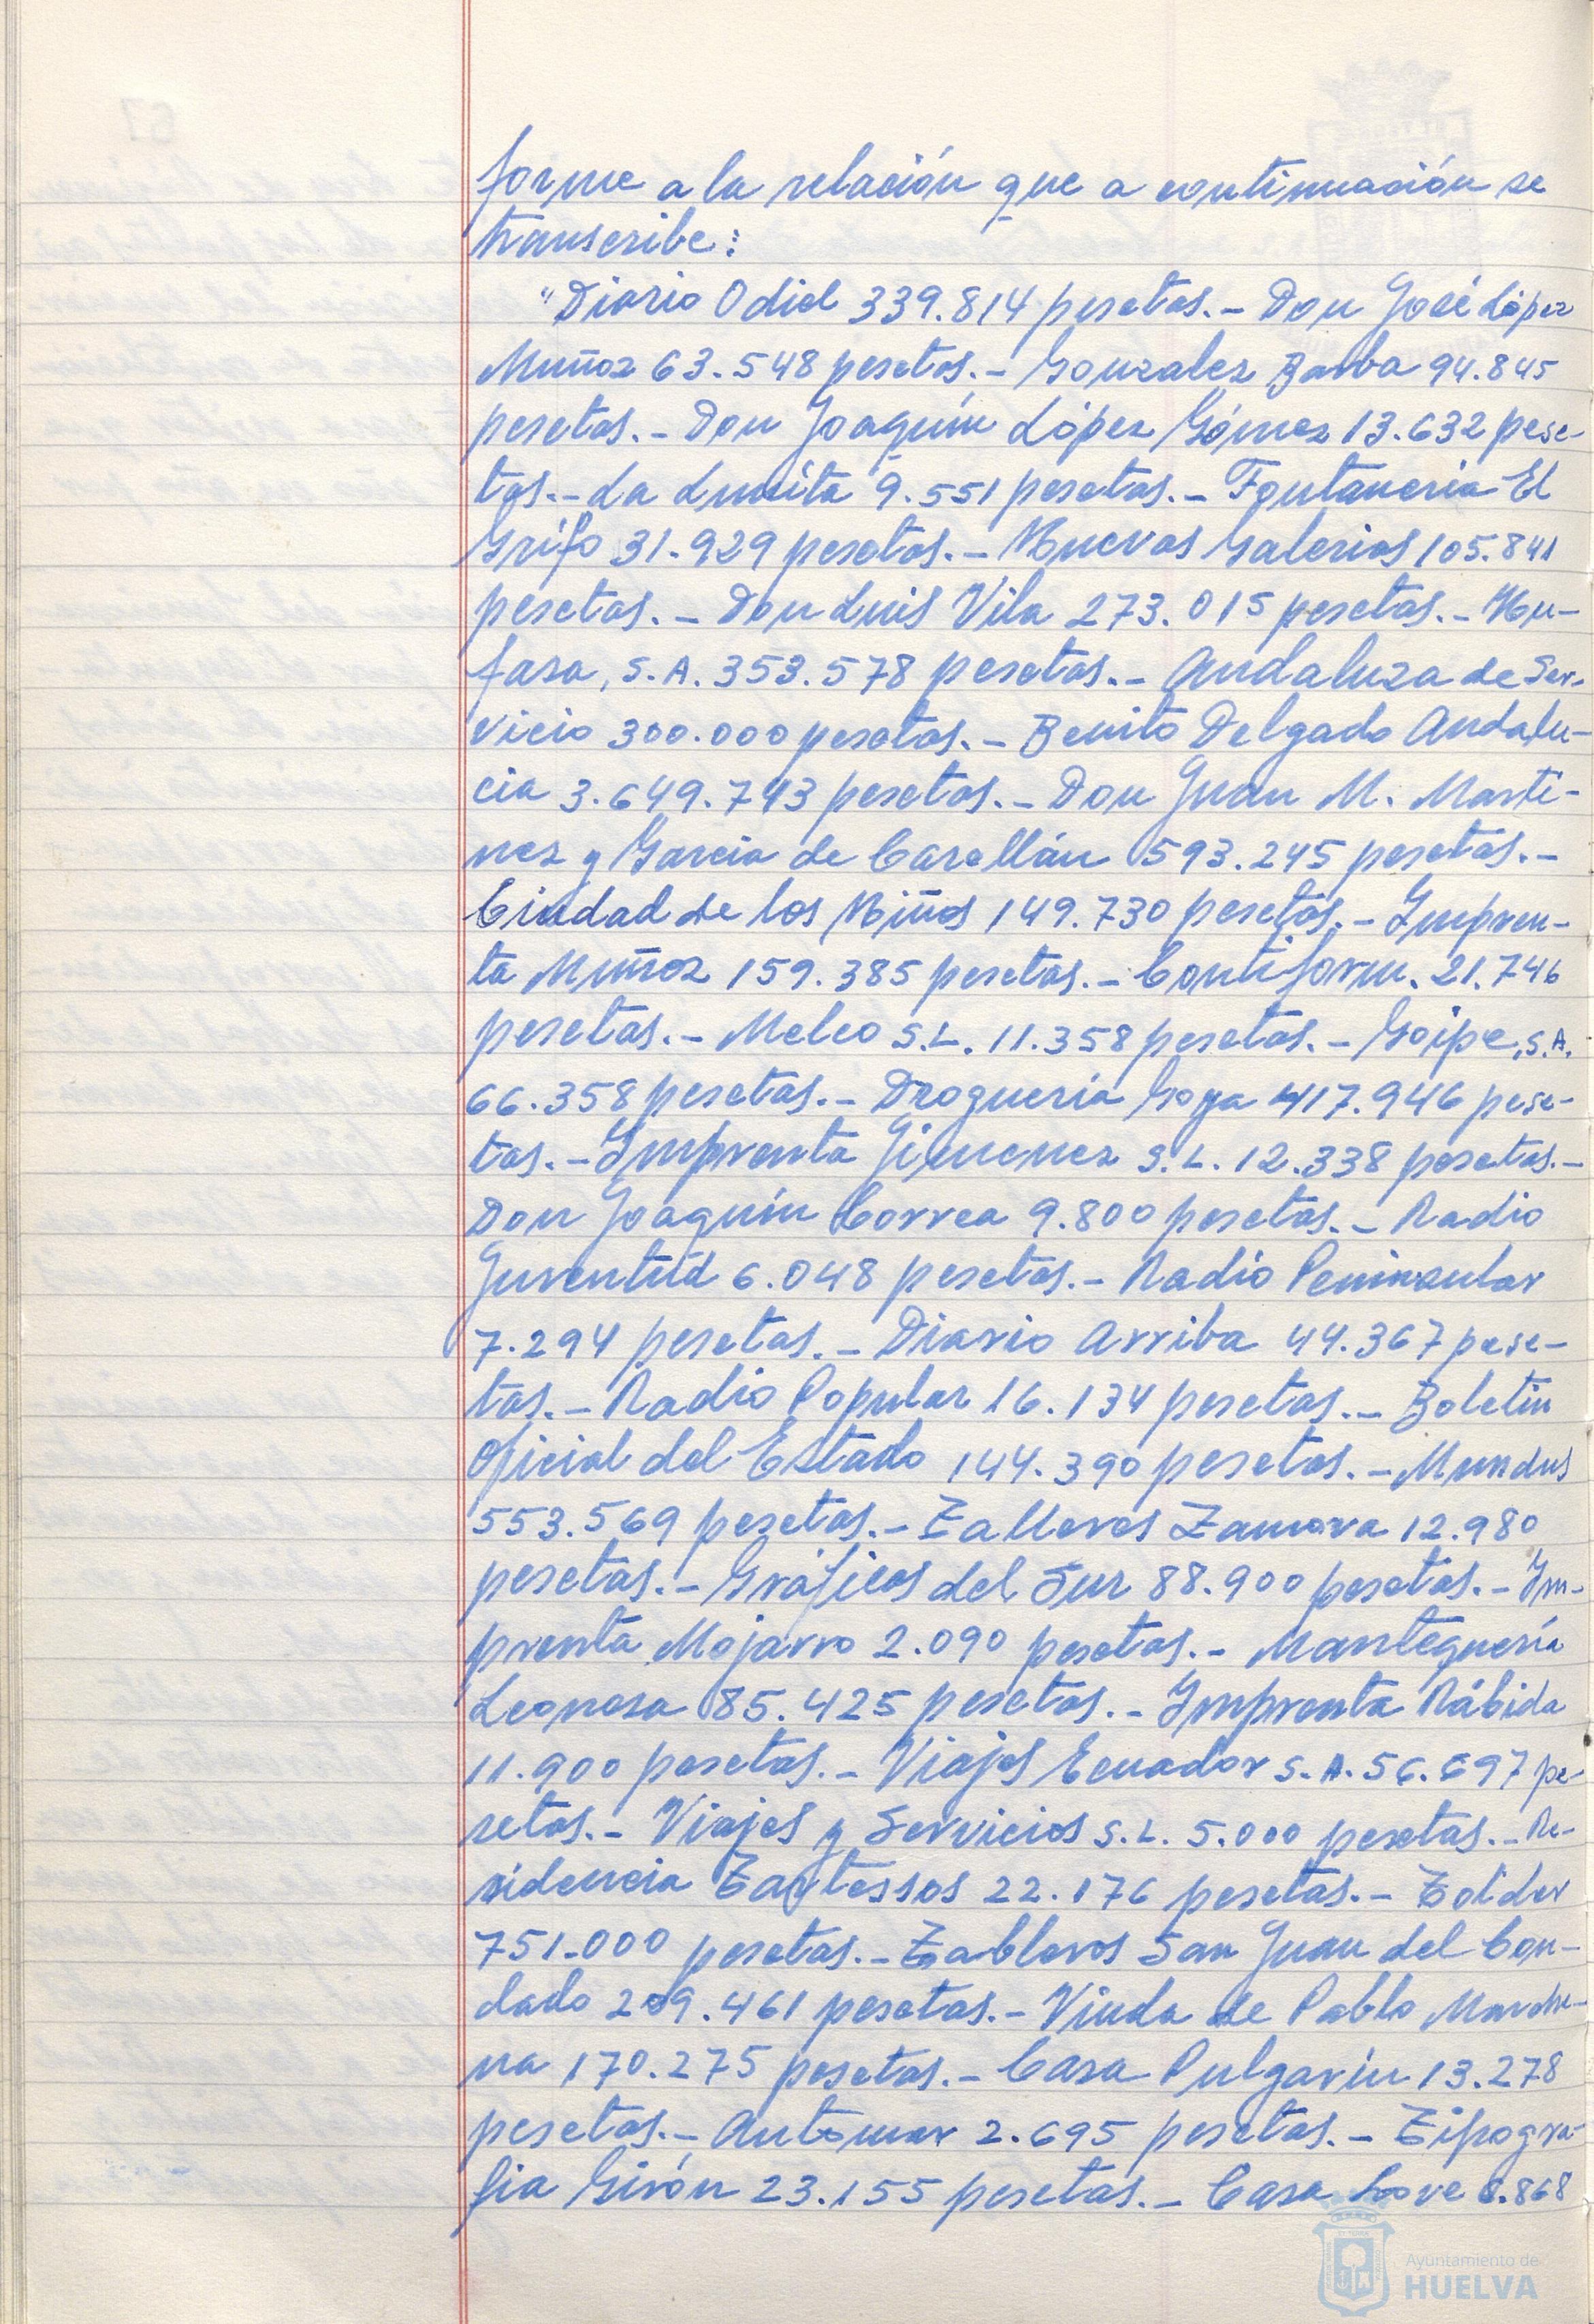 forme a la relación que a continuación se
transcribe:
"Diario Odiel 339.814 pesetas.- Don José López
Muñoz 63.548 pesetas.- Gonzalez Barba 94.845
pesetas.- Don Joaquín López Gómez 13.632 pese-
tas.- La Lunita 9.551 pesetas.- Fontaneria El
Grifo 31.929 pesetas.- Nuevas Galerias 105.841
pesetas.- Don Luis Vila 273.015 pesetas.- Hu-
fasa, S.A. 353.578 pesetas.- Andaluza de Ser-
vicio 300.000 pesetas.- Benito Delgado Andalu-
cia 3.649.743 pesetas.- Don Juan M. Marti-
nez y Garcia de Carellán 593.245 pesetas.-
Ciudad de los Niños 149.730 pesetas.- Impren-
ta Muñoz 159.385 pesetas.- Contiform. 21.746
pesetas.- Melco S.L. 11.358 pesetas.- Goipe, S.A.
66.358 pesetas.- Droguería Goya 417.946 pese-
tas.- Imprenta Jimenez S.L. 12.338 pesetas.-
Don Joaquín Correa 9.800 pesetas.- Radio
Juventud 6.048 pesetas.- Radio Peninsular
7.294 pesetas.- Diario Arriba 44.367 pese-
tas.- Radio Popular 16.134 pesetas.- Boletin
Oficial del Estado 144.390 pesetas.- Mundus
553.569 pesetas.- Talleres Zamora 12.980
pesetas.- Gráficas del Sur 88.900 pesetas.- Im-
prenta Mojarro 2.090 pesetas.- Mantequería
Leonesa 85.425 pesetas.- Imprenta Rábida
11.900 pesetas.- Viajes Ecuador S.A. 56.697 pe-
setas.- Viajes y Servicios S.L. 5.000 pesetas.- Re-
sidencia Tartessos 22.176 pesetas.- Tolder
751.000 pesetas.- Tableros San Juan del Con-
dado 209.461 pesetas.- Viuda de Pablo Marche-
na 170.275 pesetas.- Casa Pulgarín 13.278
pesetas.- Automar 2.695 pesetas.- Tipogra-
fia Girón 23.155 pesetas.- Casa Love 8.868
Ayuntamiento de
HUELVA